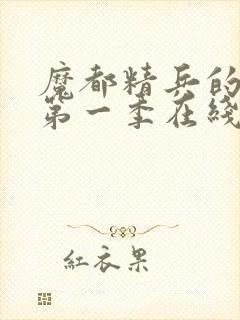 魔都精兵的
第一季在线
红衣果